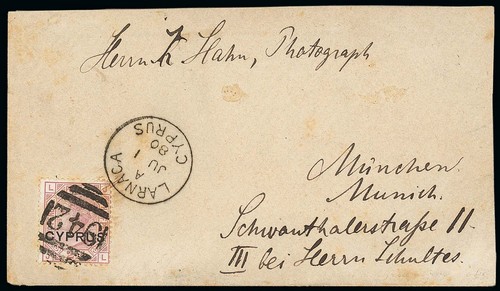 Herrn K Hahn, Photograph
LARNACA
A
JU 1
80
CYPRUS
München.
Munich.
Schwanthalerstraße 11.
III bei Herrn Schultes.
L
942
CYPRUS
L